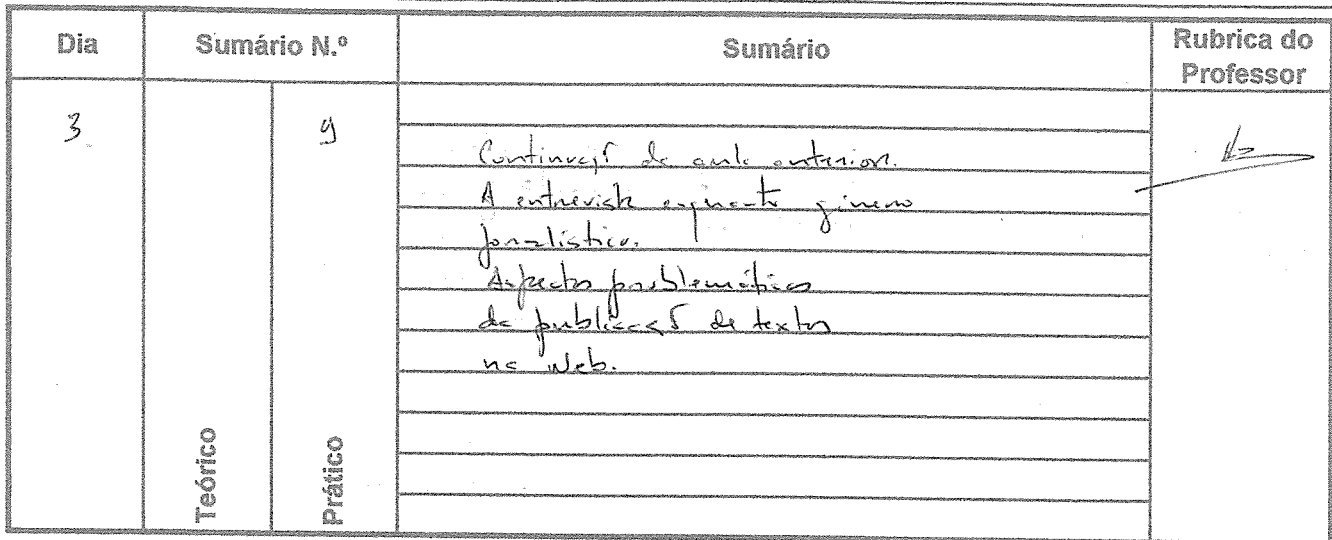 Dia Sumário N.º Sumário Rubrica do Professor
3 9
Continuação da aula anterior.
A entrevista enquanto género
jornalístico.
Aspectos problemáticos
da publicação de textos
na Web.
Teórico Prático